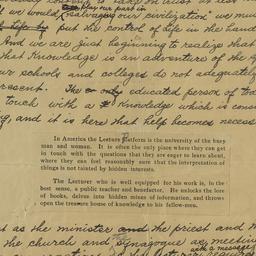 play our part in
If we would salvaging our civilization we mu
put the control of life in the hand
And we are just beginning to realize that
that Knowledge is an adventure of the
ur schools and colleges do not adequately
present. The only educated person of tod
touch with a Knowledge which is cons
g, and it is here that help becomes necess
In America the Lecture Platform is the university of the busy
man and woman. It is often the only place where they can get
in touch with the questions that they are eager to learn about,
where they can feel reasonably sure that the interpretation of
things is not tainted by hidden interests.
The Lecturer who is well equipped for his work is, in the
best sense, a public teacher and benefactor. He unlocks the lore
of books, delves into hidden mines of information, and throws
open the treasure house of knowledge to his fellow-men.
t as the minister and the priest and
the church and synagogue are meeting
with a message